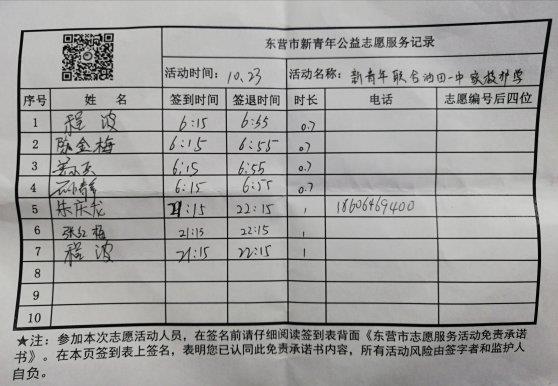 东营市新青年公益志愿服务记录
活动时间: 10.23 活动名称: 新青年联合油田一中家校护学
序号 姓 名 签到时间 签退时间 时长 电话 志愿编号后四位
1 程波 6:15 6:55 0.7
2 陈金梅 6:15 6:55 0.7
3 6:15 6:55 0.7
4 6:15 6:55 0.7
5 朱庆龙 21:15 22:15 1 18606469400
6 张红梅 21:15 22:15 1
7 程波 21:15 22:15 1
8
9
10
★注：参加本次志愿活动人员，在签名前请仔细阅读签到表背面《东营市志愿服务活动免责承诺
书》。在本页签到表上签名，表明您已认同此免责承诺书内容，所有活动风险由签字者和监护人
自负。